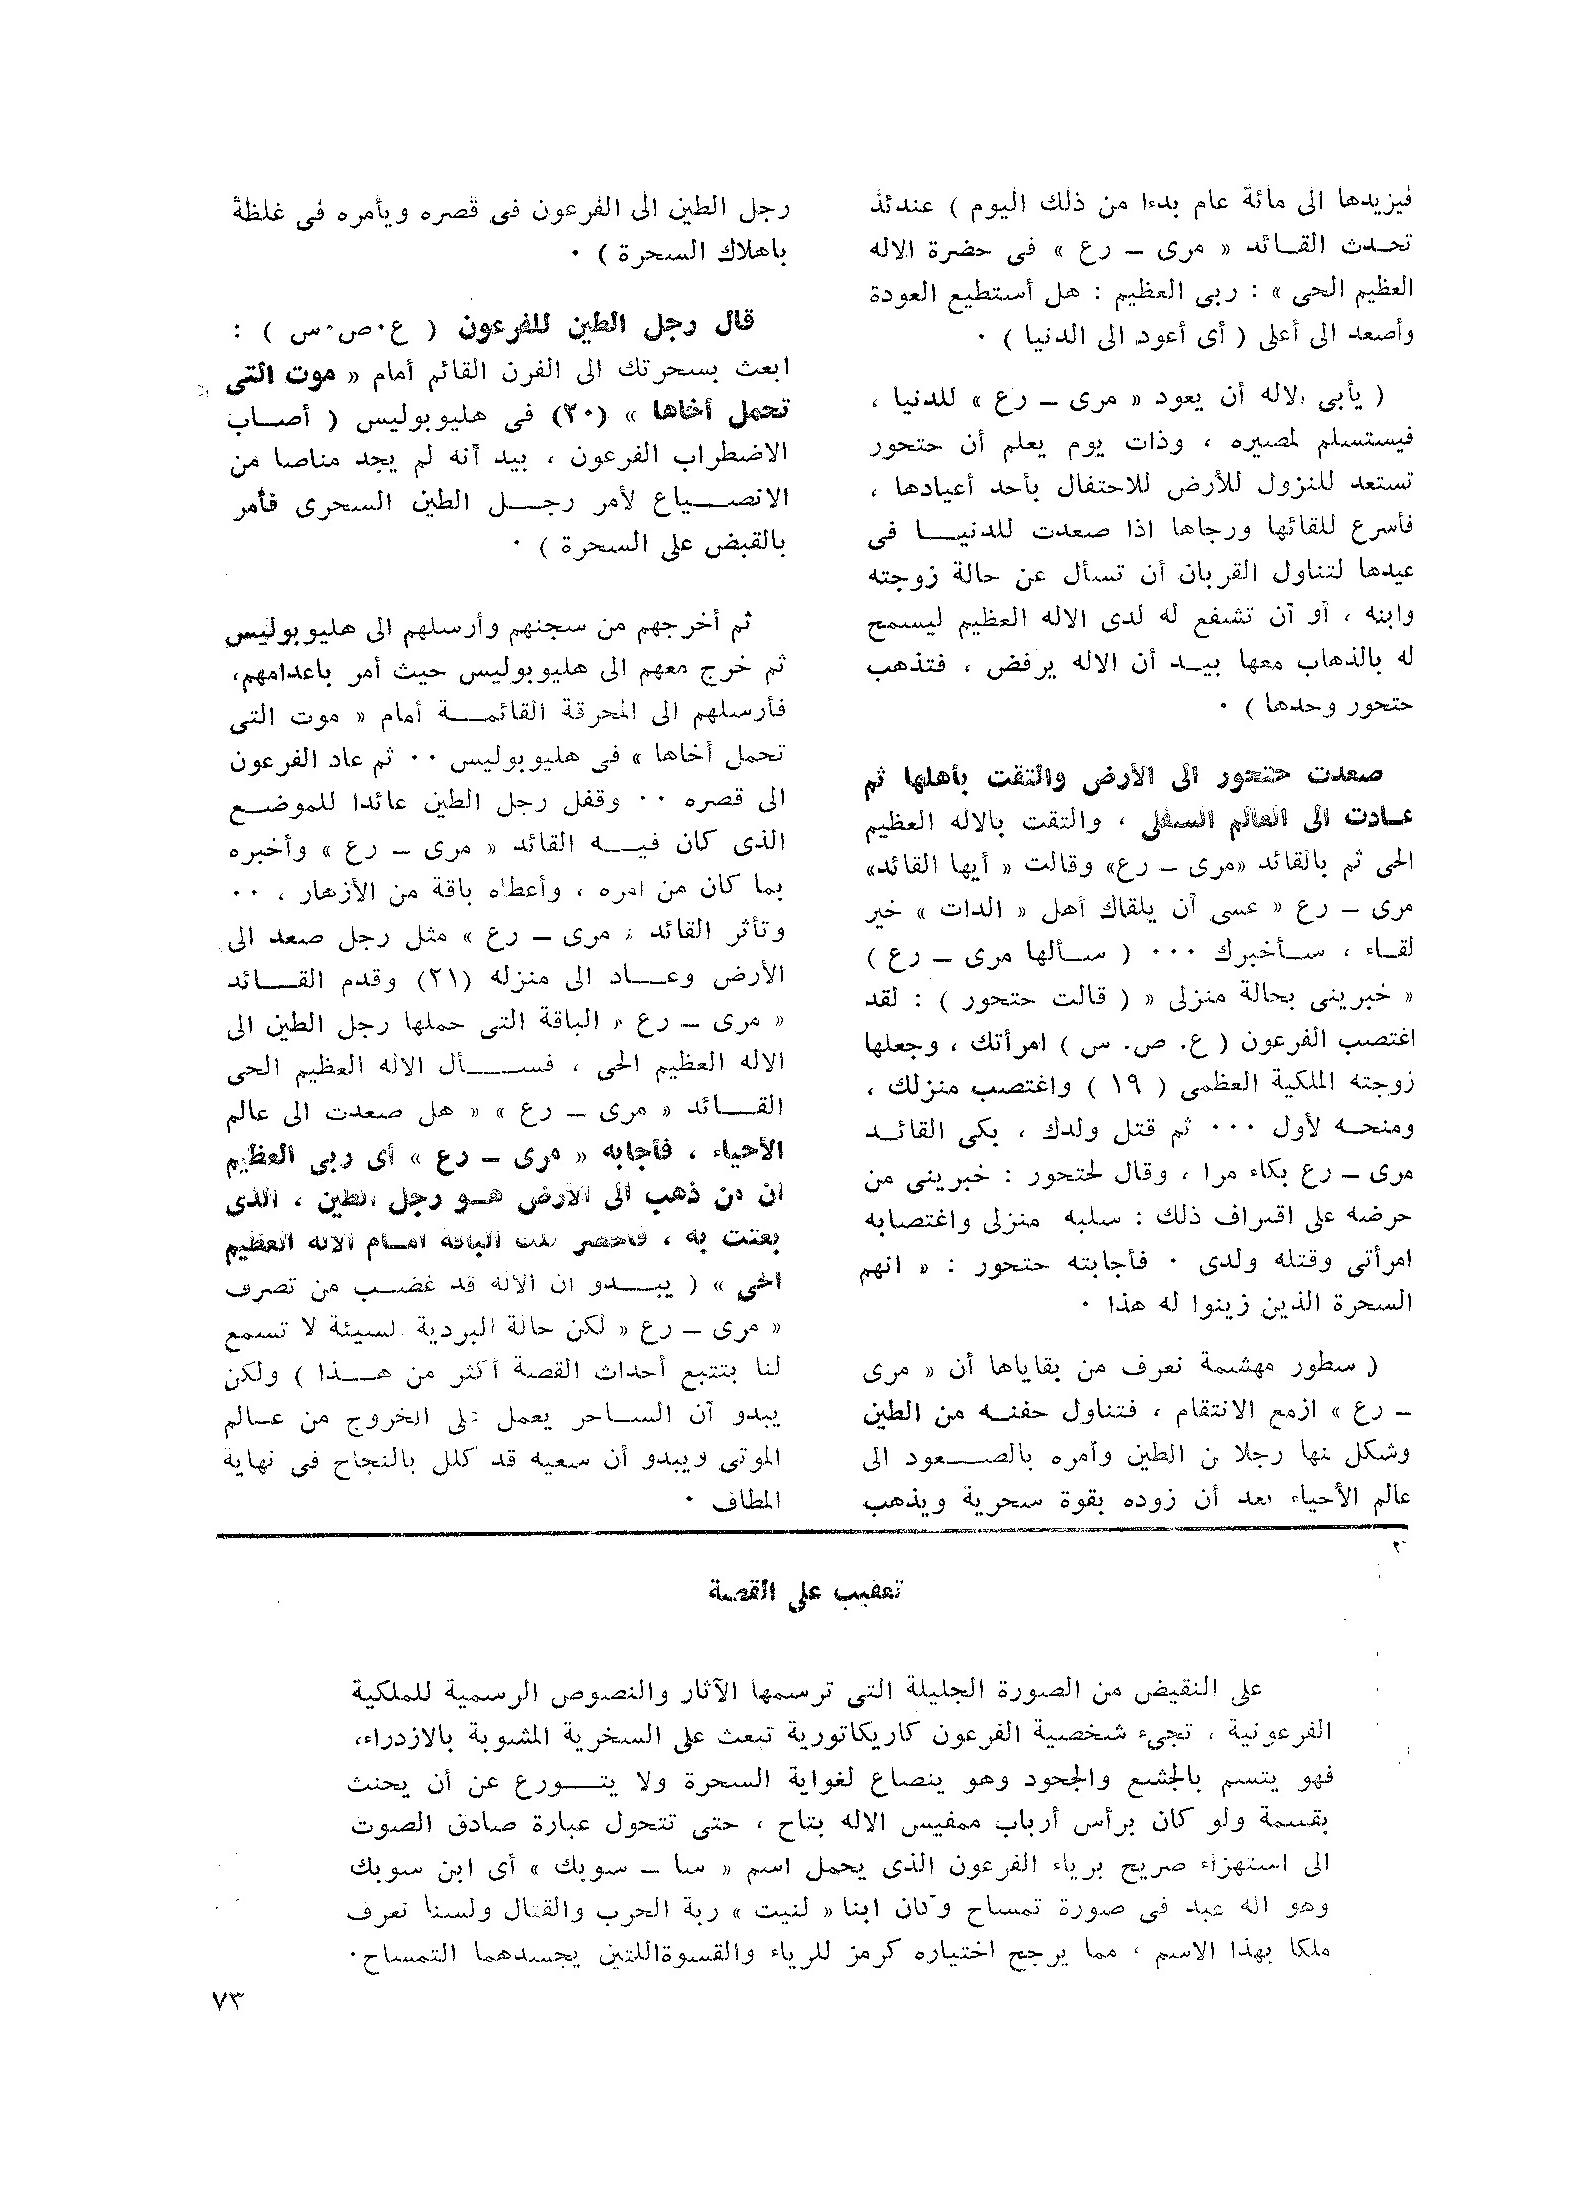 فيزيدها الى مائة عام بدءا من ذلك اليوم ) عندئذ
تحدث القائد « مرى – رع » فى حضرة الاله
العظيم الحى » : ربى العظيم : هل أستطيع العودة
وأصعد الى أعلى ( أى أعود الى الدنيا ) ٠
( يأبى الاله أن يعود « مرى – رع » للدنيا ،
فيستسلم لمصيره ، وذات يوم يعلم أن حتحور
تستعد للنزول للأرض للاحتفال بأحد أعيادها ،
فأسرع للقائها ورجاها اذا صعدت للدنيا فى
عيدها لتناول القربان أن تسأل عن حالة زوجته
وابنه ، أو أن تشفع له لدى الاله العظيم ليسمح
له بالذهاب معها بيد أن الاله يرفض ، فتذهب
حتحور وحدها ) ٠
صعدت حتحور الى الأرض والتقت بأهلها ثم
عادت الى العالم السفلى ، والتقت بالاله العظيم
الحى ثم بالقائد «مرى – رع» وقالت « أيها القائد»
مرى – رع « عسى أن يلقاك أهل « الدات » خير
لقاء ، سأخبرك ٠٠٠ ( سألها مرى – رع )
« خبرينى بحالة منزلى « ( قالت حتحور ) : لقد
اغتصب الفرعون ( ع. ص. س ) امرأتك ، وجعلها
زوجته الملكية العظمى ( ١٩ ) واغتصب منزلك ،
ومنحه لأول ٠٠٠ ثم قتل ولدك ، بكى القائد
مرى – رع بكاء مرا ، وقال لحتحور : خبرينى من
حرضه على اقتراف ذلك : سلبه منزلى واغتصابه
امرأتى وقتله ولدى ٠ فأجابته حتحور : « انهم
السحرة الذين زينوا له هذا ٠
( سطور مهشمة نعرف من بقاياها أن « مرى
– رع » ازمع الانتقام ، فتناول حفنه من الطين
وشكل منها رجلا من الطين وأمره بالصعود الى
عالم الأحياء بعد أن زوده بقوة سحرية ويذهب
رجل الطين الى الفرعون فى قصره ويأمره فى غلظة
باهلاك السحرة ) ٠
قال رجل الطين للفرعون ( ع٠ص٠س ) :
ابعث بسحرتك الى الفرن القائم أمام « موت التى
تحمل أخاها » (٢٠) فى هليوبوليس ( أصاب
الاضطراب الفرعون ، بيد أنه لم يجد مناصا من
الانصياع لأمر رجل الطين السحرى فأمر
بالقبض على السحرة ) ٠
ثم أخرجهم من سجنهم وأرسلهم الى هليوبوليس
ثم خرج معهم الى هليوبوليس حيث أمر باعدامهم،
فأرسلهم الى المحرقة القائمة أمام « موت التى
تحمل أخاها » فى هليوبوليس ٠٠ ثم عاد الفرعون
الى قصره ٠٠ وقفل رجل الطين عائدا للموضع
الذى كان فيه القائد « مرى – رع » وأخبره
بما كان من امره ، وأعطاه باقة من الأزهار ، ٠٠
وتأثر القائد « مرى – رع » مثل رجل صعد الى
الأرض وعاد الى منزله (٢١) وقدم القائد
« مرى – رع « الباقة التى حملها رجل الطين الى
الاله العظيم الحى ، فسأل الاله العظيم الحى
القائد « مرى – رع » « هل صعدت الى عالم
الأحياء ، فأجابه « مرى – رع » أى ربى العظيم
ان من ذهب الى الأرض هو رجل الطين ، الذى
بعثت به ، فأحضر تلك الباقة امام الاله العظيم
الحى » ( يبدو ان الاله قد غضب من تصرف
« مرى – رع « لكن حالة البردية السيئة لا تسمع
لنا بتتبع أحداث القصة أكثر من هذا ) ولكن
يبدو أن الساحر يعمل على الخروج من عالم
الموتى ويبدو أن سعيه قد كلل بالنجاح فى نهاية
المطاف ٠
تعقيب على القصة
على النقيض من الصورة الجليلة التى ترسمها الآثار والنصوص الرسمية للملكية
الفرعونية ، تجىء شخصية الفرعون كاريكاتورية تبعث على السخرية المشوبة بالازدراء،
فهو يتسم بالجشع والجحود وهو ينصاع لغواية السحرة ولا يتورع عن أن يحنث
بقسمة ولو كان برأس أرباب ممفيس الاله بتاح ، حتى تتحول عبارة صادق الصوت
الى استهزاء صريح برياء الفرعون الذى يحمل اسم « سا – سوبك » أى ابن سوبك
وهو اله عبد فى صورة تمساح وكان ابنا « لنيت » ربة الحرب والقتال ولسنا نعرف
ملكا بهذا الاسم ، مما يرجح اختياره كرمز للرياء والقسوةاللتين يجسدهما التمساح٠
٧٣